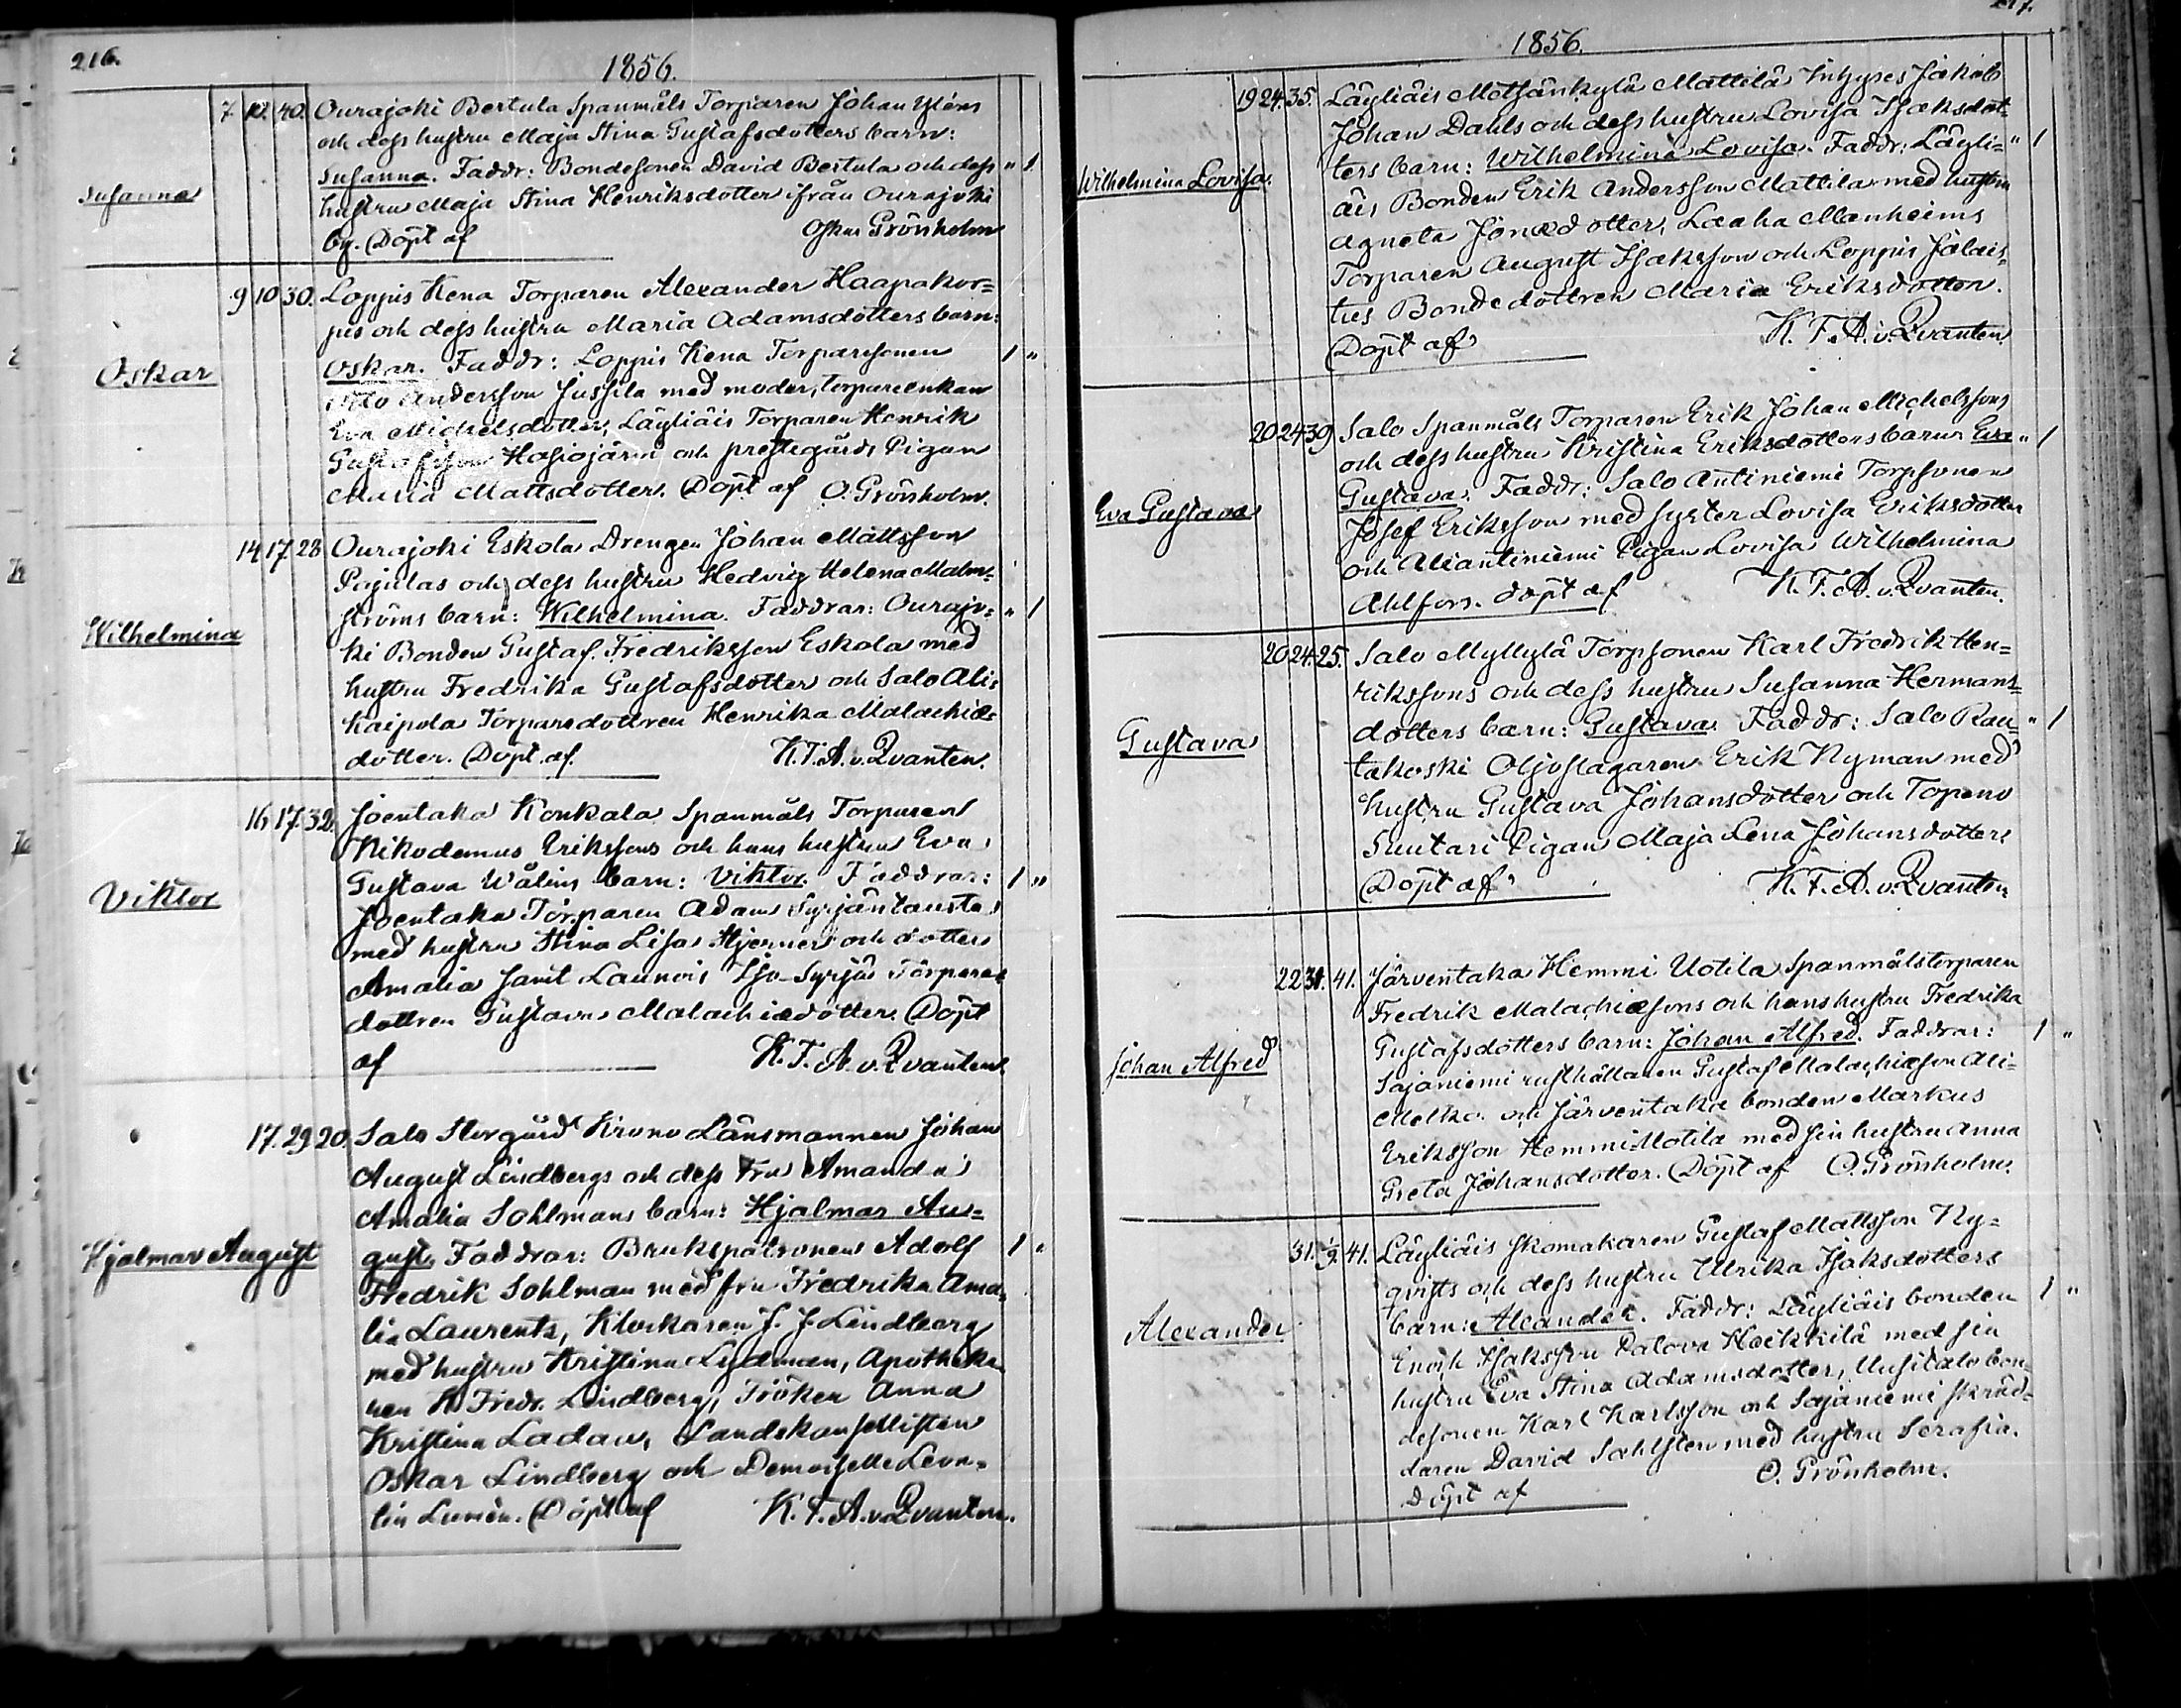 216.
1856.
Susanna
7. 10. 40. Ourajoki Bertula Spanmåls Torparen Johan
och dess hustru Maja Stina Gustafsdotters barn:
Susanna. Faddr: Bondesonen David Bertula och dess " 1
hustru Maja Stina Henriksdotter ifrån Ourajoki
by. Döpt af Oskar Grönholm
Oskar
9 10 30. Loppis Kena Torparen Alexander Haapakor=
pis och dess hustru Maria Adamsdotters barn:
Oskar. Faddr: Loppis Kena Torparesonen 1 "
Otto Andersson Jussila med moder, torpareenkan
Eva Michelsdotter, Läyliäis Torparen Henrik
Gustafsson Hasiojärvi och prestegårds Pigan
Maria Mattsdotter. Döpt af O. Grönholm.
Wilhelmina
14 17. 28 Ourajoki Eskola Drengen Johan Mattsson
Pajulas och dess hustru Hedvig Helena Malm=
ströms barn: Wilhelmina. Faddrar: Ourajo= " 1
ki Bonden Gustaf Fredriksson Eskola med
hustru Fredrika Gustafsdotter och Salo Ali=
kaipola Torparedottren Henrika Malachiæ
dotter. Döpt af K. F. A. v. Qvanten.
Viktor
16 17. 32. Joentaka Konkala Spanmåls Torparen
Nikodemus Erikssons och hans hustru Eva
Gustava Wålins barn: Viktor. Faddrar: 1 "
Joentaka Torparen Adam Syrjäntausta
med hustru Stina Lisa Stjerner och dotter
Amalia samt Launois Iso-Syrjäs Torpare
dottren Gustava Malachiædotter. Döpt
af K. F. A. v. Qvanten
Hjalmar August
17. 29 20. Salo Storgård Krono Länsmannen Johan
August Lindbergs och dess Fru Amanda
Amalia Sohlmans barn: Hjalmar Au=
gust. Faddrar: Brukspatronen Adolf 1 "
Fredrik Sohlman med fru Fredrika Ama=
lia Laurentz, Klockaren J. J. Lindberg
med hustru Kristina Lydman, Apotheka
ren K. Fredr. Lindberg, Fröken Anna
Kristina Ladau, Landskansellisten
Oskar Lindberg och Demoiselle Leon=
tin Lunén. Döpt af K. F. A. v. Qvanten.
217.
1856.
Wilhelmina Lovisa.
19 24. 35. Läyliäis Motsänkylä Mattilä Inhyses Jakob
Johan Dahls och dess hustru Lovisa Isaksdot=
ters barn: Wilhelmina Lovisa. Faddr: Läyli= " 1
äis Bonden Erik Andersson Mattila med hustru
Agneta Jonædotter, Laaha Manheims
Torparen August Isaksson och Loppis Jälais=
tus Bondedottren Maria Eriksdotter.
Döpt af K. F. A. v. Qvanten
Eva Gustava
20 24 39 Salo Spanmåls Torparen Erik Johan Michelssons
och dess hustru Kristina Eriksdotters barn: Eva " 1
Gustava. Faddr: Salo Antiniemi Torpsonen
Josef Eriksson med syster Lovisa Eriksdotter
och Aliantiniemi Pigan Lovisa Wilhelmina
Ahlfors. Döpt af K. F. A. v. Qvanten.
Gustava
20 24. 25. Salo Myllylä Torpsonen Karl Fredrik Hen=
rikssons och dess hustru Susanna Hermans=
dotters barn: Gustava. Faddr: Salo Rau= " 1
takoski Oljoslagaren Erik Nyman med
hustru Gustava Johansdotter och Topeno
Suutari Pigan Maja Lena Johansdotter.
Döpt af K. F. A. v. Qvanten
Johan Alfred
22 31. 41. Järventaka Hemmi Uotila Spanmålstorparen
Fredrik Malachiæsons och hans hustru Fredrika
Gustafsdotters barn: Johan Alfred. Faddrar: 1 "
Sajaniemi rusthållaren Gustaf Malachiæson Ali=
Melko och Järventaka bonden Markus
Eriksson Hemmi Uotila med sin hustru Anna
Greta Johansdotter. Döpt af O. Grönholm.
Alexander
31. 1/9. 41. Läyliäis skomakaren Gustaf Mattsson Ny=
qvists och dess hustru Ulrika Isaksdotters
barn: Alexander. Faddr: Läyliäis bonden 1 "
Enoch Isaksson Palova Heikkilä med sin
hustru Eva Stina Adamsdotter, Uusitalo bon=
desonen Karl Karlsson och Sajaniemi skräd=
daren David Sahlsten med hustru Serafia.
Döpt af O. Grönholm.